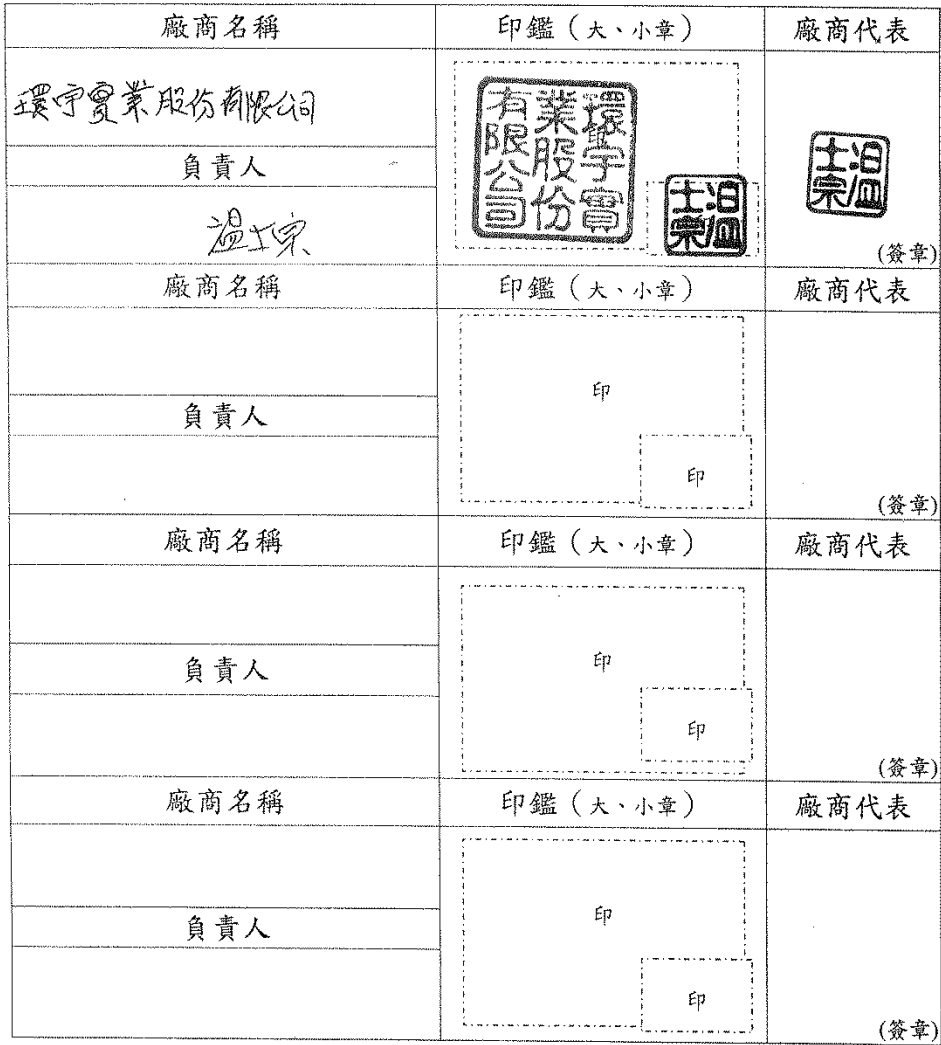 廠商名稱 印鑑（大、小章） 廠商代表
環宇實業股份有限公司
環宇實業股份有限公司
印
負責人
溫士宗
溫士宗
溫士宗
(簽章)
廠商名稱 印鑑（大、小章） 廠商代表
印
負責人
印
(簽章)
廠商名稱 印鑑（大、小章） 廠商代表
印
負責人
印
(簽章)
廠商名稱 印鑑（大、小章） 廠商代表
印
負責人
印
(簽章)